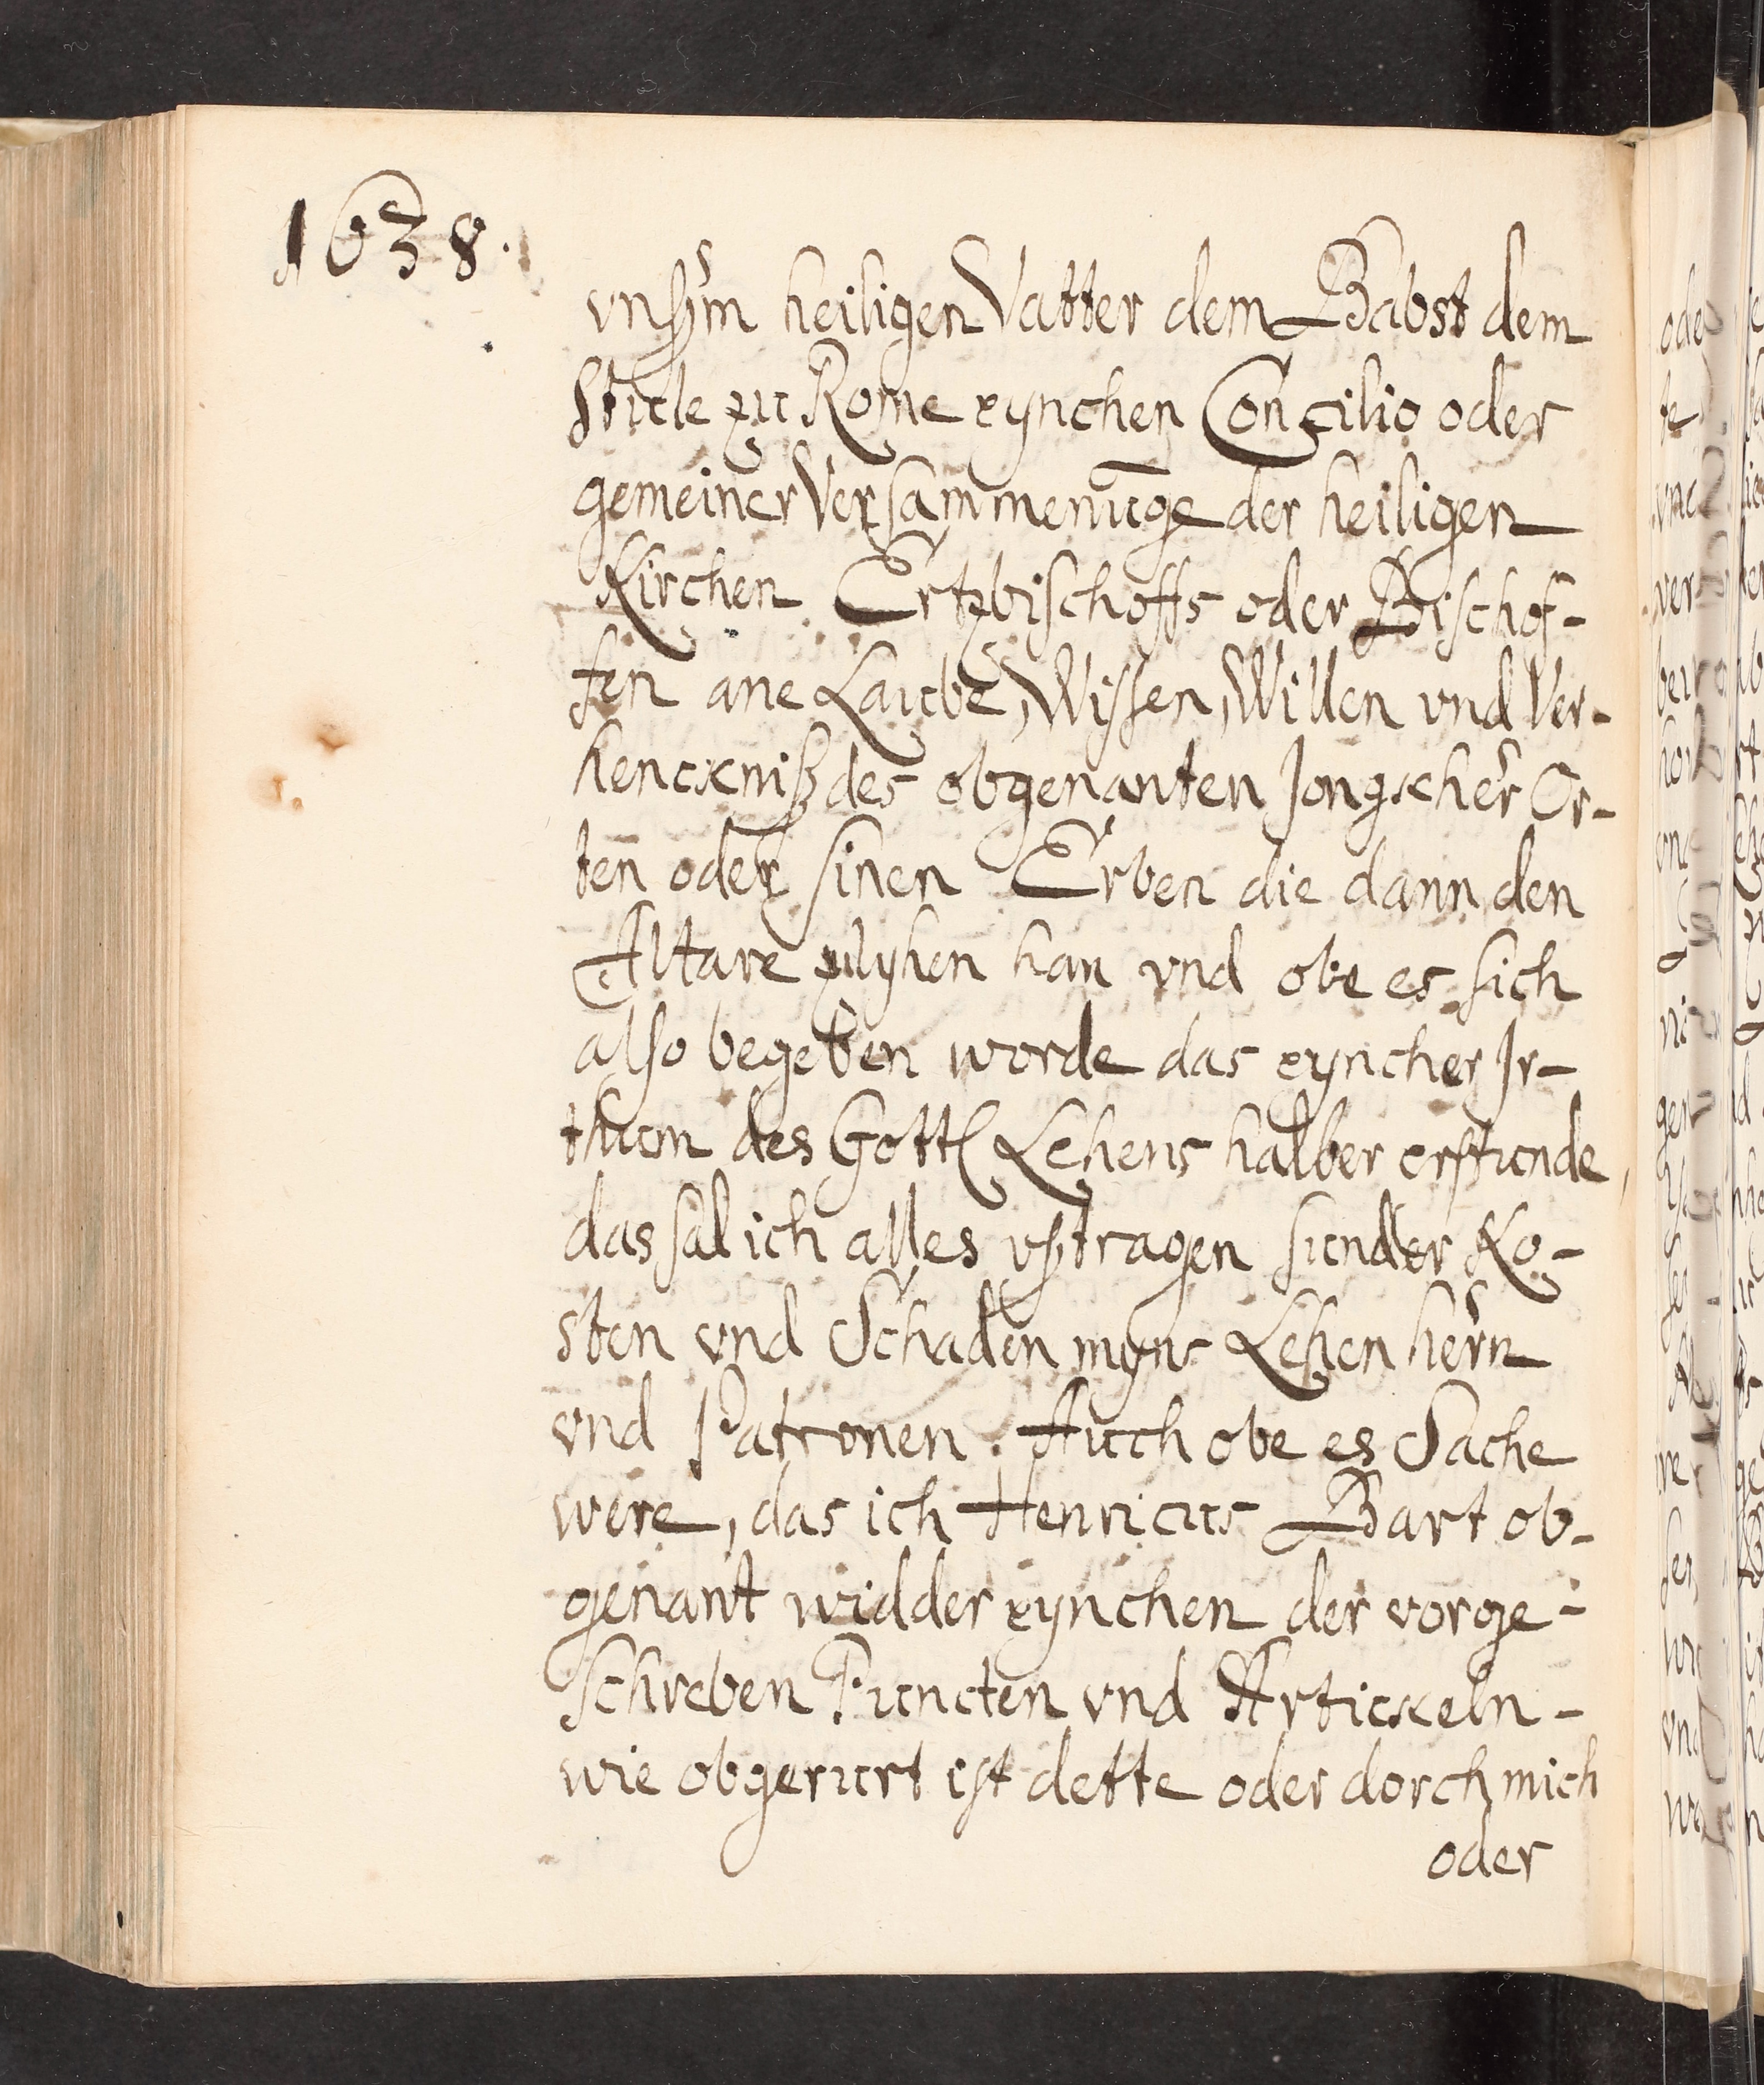 1638.
vnßrm heiligen Vatter dem Babst dem
Stule zu Rome eynchen Concilio oder
gemeiner Versammenu̅ge der heiligen
Kirchen Ertzbischoffs oder Bischof-
fen ane Laube, Wissen, Willen vnd Ver-
henckniß des obgenanten Jongscher Or-
ten oder sinen Erben die dann den
Altare zulyhen han vnd obe es sich
also begeben worde das eyncher Jr-
thum des Gottl Lehens halber erstunde,
das sal ich alles vßtragen sunder Ko-
sten vnd Schaden myns Lehen hern
vnd Patronen. Auch obe es Sache
were, das ich Henricus Bart ob-
genant widder eynchen der vorge-
schreben Puncten vnd Artickeln-
wie obgerurt ist dette oder dorch mich
oder